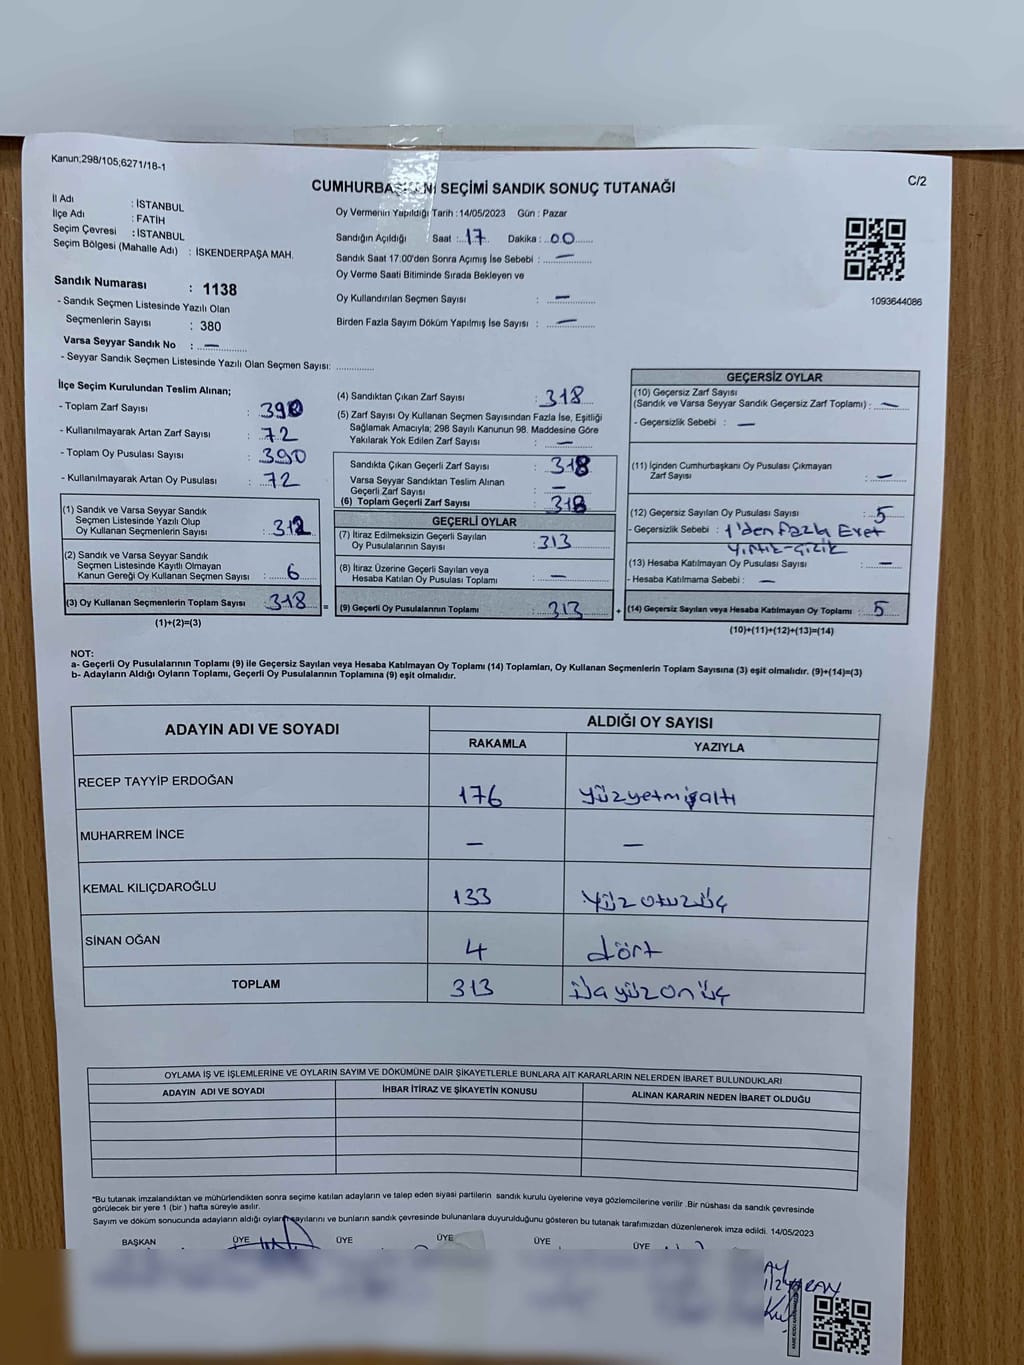 Kanun;298/105;6271/18-1
C/2
CUMHURBAŞKANI SEÇİMİ SANDIK SONUÇ TUTANAĞI
İl Adı : İSTANBUL
İlçe Adı : FATİH
Seçim Çevresi : İSTANBUL
Seçim Bölgesi (Mahalle Adı) : İSKENDERPAŞA MAH.
Sandık Numarası : 1138
- Sandık Seçmen Listesinde Yazılı Olan
Seçmenlerin Sayısı : 380
Varsa Seyyar Sandık No : —
- Seyyar Sandık Seçmen Listesinde Yazılı Olan Seçmen Sayısı: ............
Oy Vermenin Yapıldığı Tarih : 14/05/2023 Gün : Pazar
Sandığın Açıldığı Saat : 17 Dakika : 00
Sandık Saat 17:00'den Sonra Açımış İse Sebebi : —
Oy Verme Saati Bitiminde Sırada Bekleyen ve
Oy Kullandırılan Seçmen Sayısı : —
Birden Fazla Sayım Döküm Yapılmış İse Sayısı : —
1093644086
İlçe Seçim Kurulundan Teslim Alınan;
- Toplam Zarf Sayısı : 390
- Kullanılmayarak Artan Zarf Sayısı : 72
- Toplam Oy Pusulası Sayısı : 390
- Kullanılmayarak Artan Oy Pusulası : 72
(1) Sandık ve Varsa Seyyar Sandık
Seçmen Listesinde Yazılı Olup
Oy Kullanan Seçmenlerin Sayısı : 312
(2) Sandık ve Varsa Seyyar Sandık
Seçmen Listesinde Kayıtlı Olmayan
Kanun Gereği Oy Kullanan Seçmen Sayısı : 6
(3) Oy Kullanan Seçmenlerin Toplam Sayısı 318 =
(1)+(2)=(3)
(4) Sandıktan Çıkan Zarf Sayısı : 318
(5) Zarf Sayısı Oy Kullanan Seçmen Sayısından Fazla İse, Eşitliği
Sağlamak Amacıyla; 298 Sayılı Kanunun 98. Maddesine Göre
Yakılarak Yok Edilen Zarf Sayısı : —
Sandıkta Çıkan Geçerli Zarf Sayısı : 318
Varsa Seyyar Sandıktan Teslim Alınan
Geçerli Zarf Sayısı : —
(6) Toplam Geçerli Zarf Sayısı : 318
GEÇERLİ OYLAR
(7) İtiraz Edilmeksizin Geçerli Sayılan
Oy Pusulalarının Sayısı : 313
(8) İtiraz Üzerine Geçerli Sayılan veya
Hesaba Katılan Oy Pusulası Toplamı : —
(9) Geçerli Oy Pusulalarının Toplamı : 313 +
GEÇERSİZ OYLAR
(10) Geçersiz Zarf Sayısı
(Sandık ve Varsa Seyyar Sandık Geçersiz Zarf Toplamı) - —
- Geçersizlik Sebebi : —
(11) İçinden Cumhurbaşkanı Oy Pusulası Çıkmayan
Zarf Sayısı : —
(12) Geçersiz Sayılan Oy Pusulası Sayısı : 5
- Geçersizlik Sebebi : 1'den Fazla Evet
Yırtık-Çizik
(13) Hesaba Katılmayan Oy Pusulası Sayısı : —
- Hesaba Katılmama Sebebi : —
(14) Geçersiz Sayılan veya Hesaba Katılmayan Oy Toplamı : 5
(10)+(11)+(12)+(13)=(14)
NOT:
a- Geçerli Oy Pusulalarının Toplamı (9) ile Geçersiz Sayılan veya Hesaba Katılmayan Oy Toplamı (14) Toplamları, Oy Kullanan Seçmenlerin Toplam Sayısına (3) eşit olmalıdır. (9)+(14)=(3)
b- Adayların Aldığı Oyların Toplamı, Geçerli Oy Pusulalarının Toplamına (9) eşit olmalıdır.
ADAYIN ADI VE SOYADI ALDIĞI OY SAYISI
RAKAMLA YAZIYLA
RECEP TAYYİP ERDOĞAN 176 yüzyetmişaltı
MUHARREM İNCE — —
KEMAL KILIÇDAROĞLU 133 yüzotuzüç
SİNAN OĞAN 4 dört
TOPLAM 313 üçyüzonüç
OYLAMA İŞ VE İŞLEMLERİNE VE OYLARIN SAYIM VE DÖKÜMÜNE DAİR ŞİKAYETLERLE BUNLARA AİT KARARLARIN NELERDEN İBARET BULUNDUKLARI
ADAYIN ADI VE SOYADI İHBAR İTİRAZ VE ŞİKAYETİN KONUSU ALINAN KARARIN NEDEN İBARET OLDUĞU
*Bu tutanak imzalandıktan ve mühürlendikten sonra seçime katılan adayların ve talep eden siyasi partilerin sandık kurulu üyelerine veya gözlemcilerine verilir. Bir nüshası da sandık çevresinde
görülecek bir yere 1 (bir ) hafta süreyle asılır.
Sayım ve döküm sonucunda adayların aldığı oyların sayılarını ve bunların sandık çevresinde bulunanlara duyurulduğunu gösteren bu tutanak tarafımızdan düzenlenerek imza edildi. 14/05/2023
BAŞKAN ÜYE ÜYE ÜYE ÜYE ÜYE